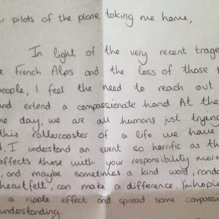 pilots of the plane taking me home,
In light of the very recent trage
French Alps and the loss of those
people, I feel the need to reach out
and extend a compassionate hand. At the
day, we are all humans just trying
this rollercoaster of a life we have
I understand an event so horrific as th
affects those with your responsibility more
and maybe sometimes a kind word, rando
heartfelt, can make a difference. I'm hopi
a ripple effect and spread some compass
understanding.